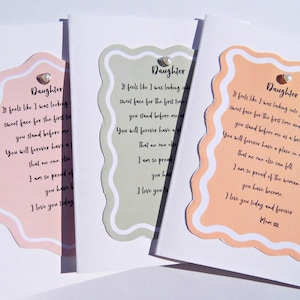 It feels like I was looking
sweet face for the first
you stand before
You will forever have
that no one
I am so proud
you have
I love you today
Daughter
It feels like I was looking into
sweet face for the first time
you stand before me as a
You will forever have a place
that no one else
I am so proud of the
you have become
I love you today and
Daughter
It feels like I was looking into
sweet face for the first time
you stand before me as a
You will forever have a place in
that no one else can fill
I am so proud of the woman
you have become
I love you today and forever
Mom xx